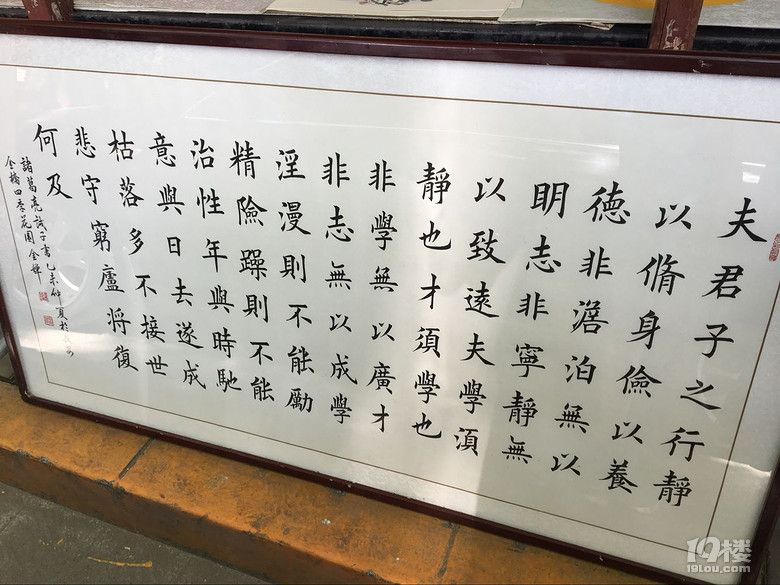 夫君子之行靜
以脩身儉以養
德非澹泊無以
明志非寧靜無
以致遠夫學須
靜也才須學也
非學無以廣才
非志無以成學
淫漫則不能勵
精險躁則不能
治性年與時馳
意與日去遂成
枯落多不接世
悲守窮廬將復
何及
諸葛亮誡子書乙未仲夏於
金橋四季花園金
19楼
19lou.com